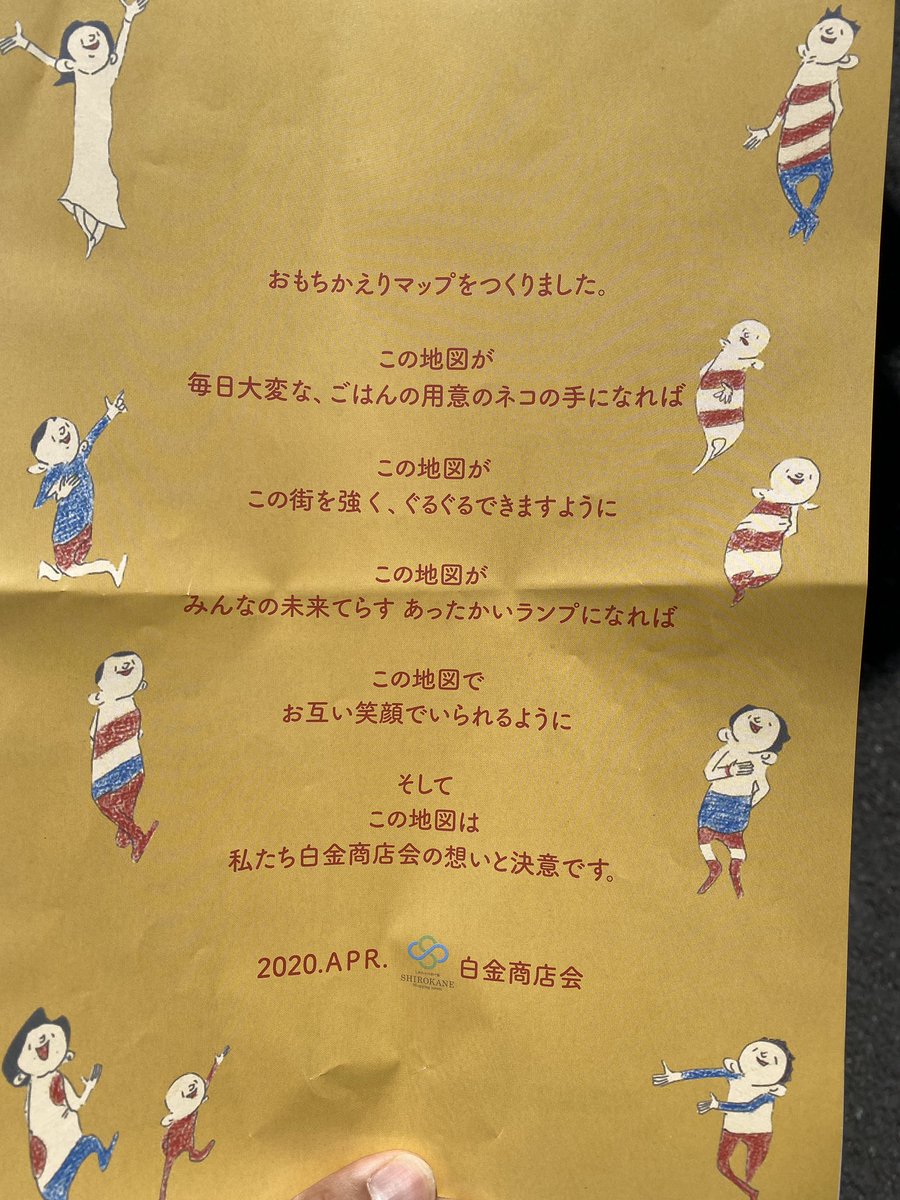 おもちかえりマップをつくりました。
この地図が
毎日大変な、ごはんの用意のネコの手になれば
この地図が
この街を強く、ぐるぐるできますように
この地図が
みんなの未来てらす あったかいランプになれば
この地図で
お互い笑顔でいられるように
そして
この地図は
私たち白金商店会の想いと決意です。
2020.APR. SHIROKANE 白金商店会